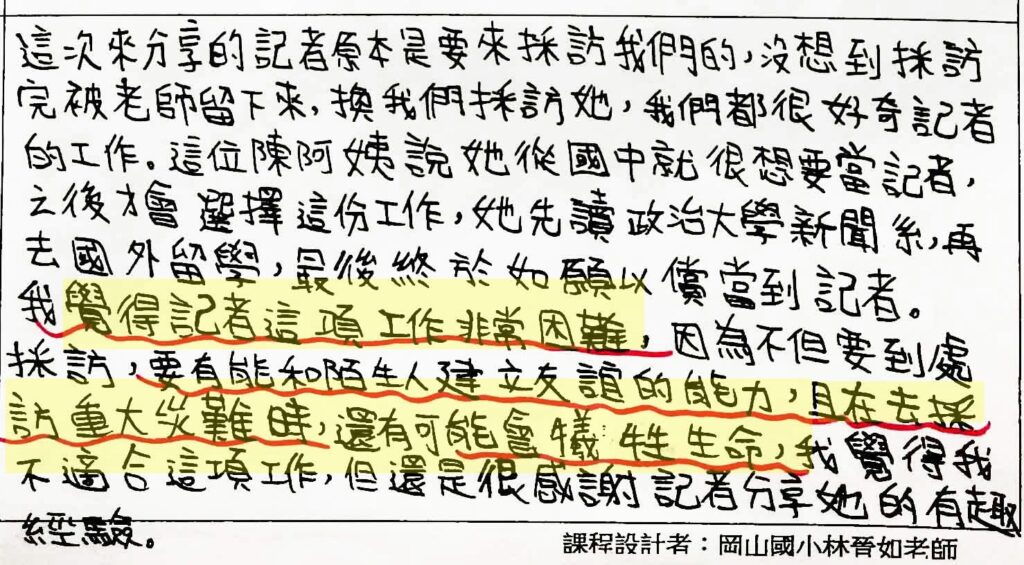 這次來分享的記者原本是要來採訪我們的，沒想到採訪
完被老師留下來，換我們採訪她，我們都很好奇記者
的工作。這位陳阿姨說她從國中就很想要當記者，
之後才會選擇這份工作，她先讀政治大學新聞系，再
去國外留學，最後終於如願以償當到記者。
我覺得記者這項工作非常困難，因為不但要到處
採訪，要有能和陌生人建立友誼的能力，且在去採
訪重大災難時，還有可能會犧牲生命，我覺得我
不適合這項工作，但還是很感謝記者分享她的有趣
經驗。
課程設計者：岡山國小林晉如老師